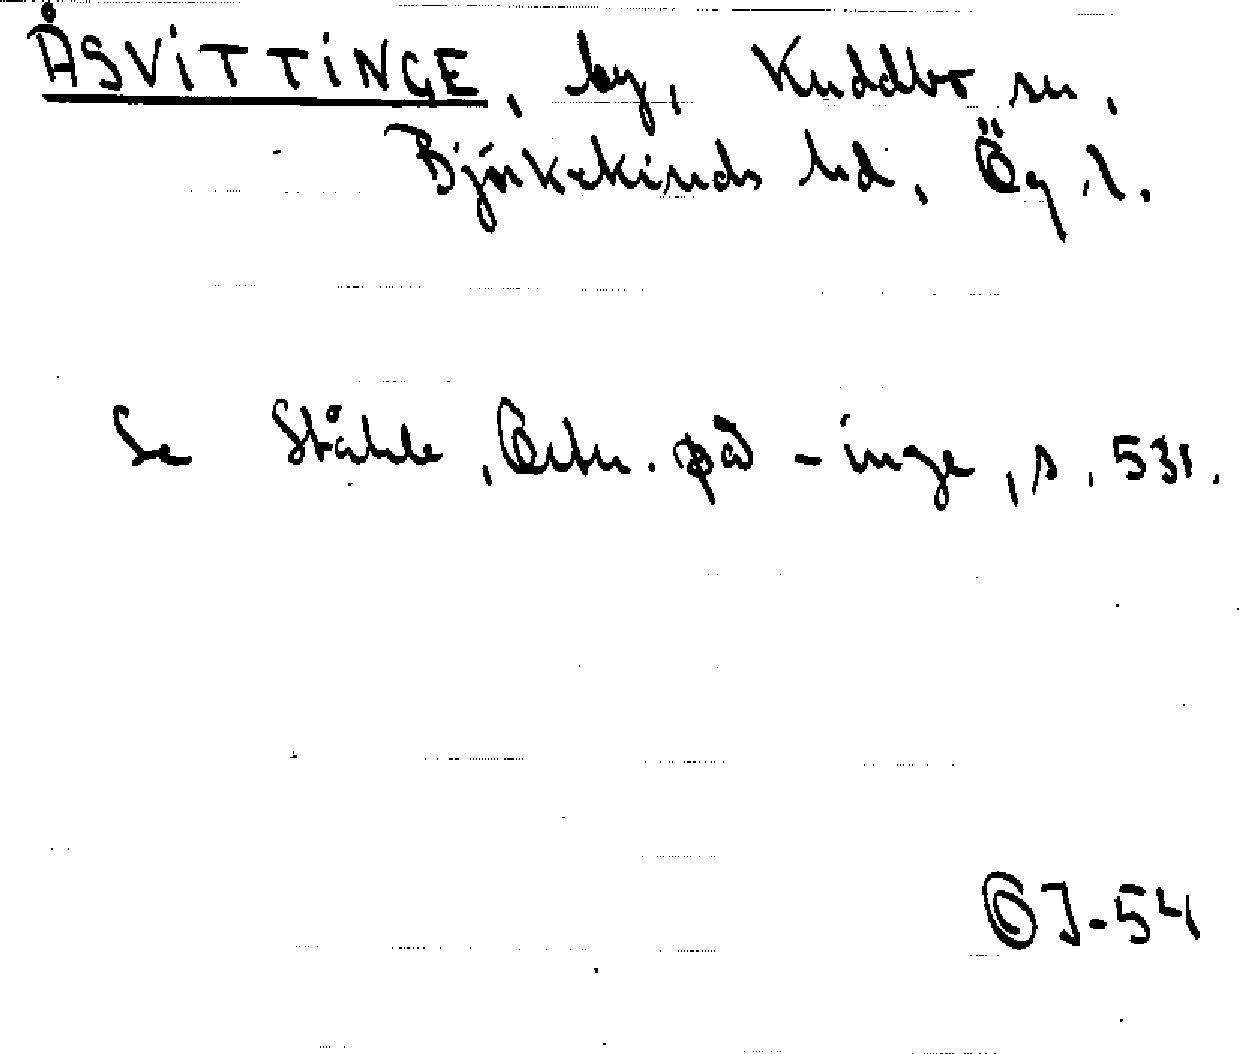 ÅSVITTINGE, by, Kuddby sn,
Björkekinds hd, Ög. l.
Se Ståhle, Ortn. på -inge, s. 531.
OJ-54